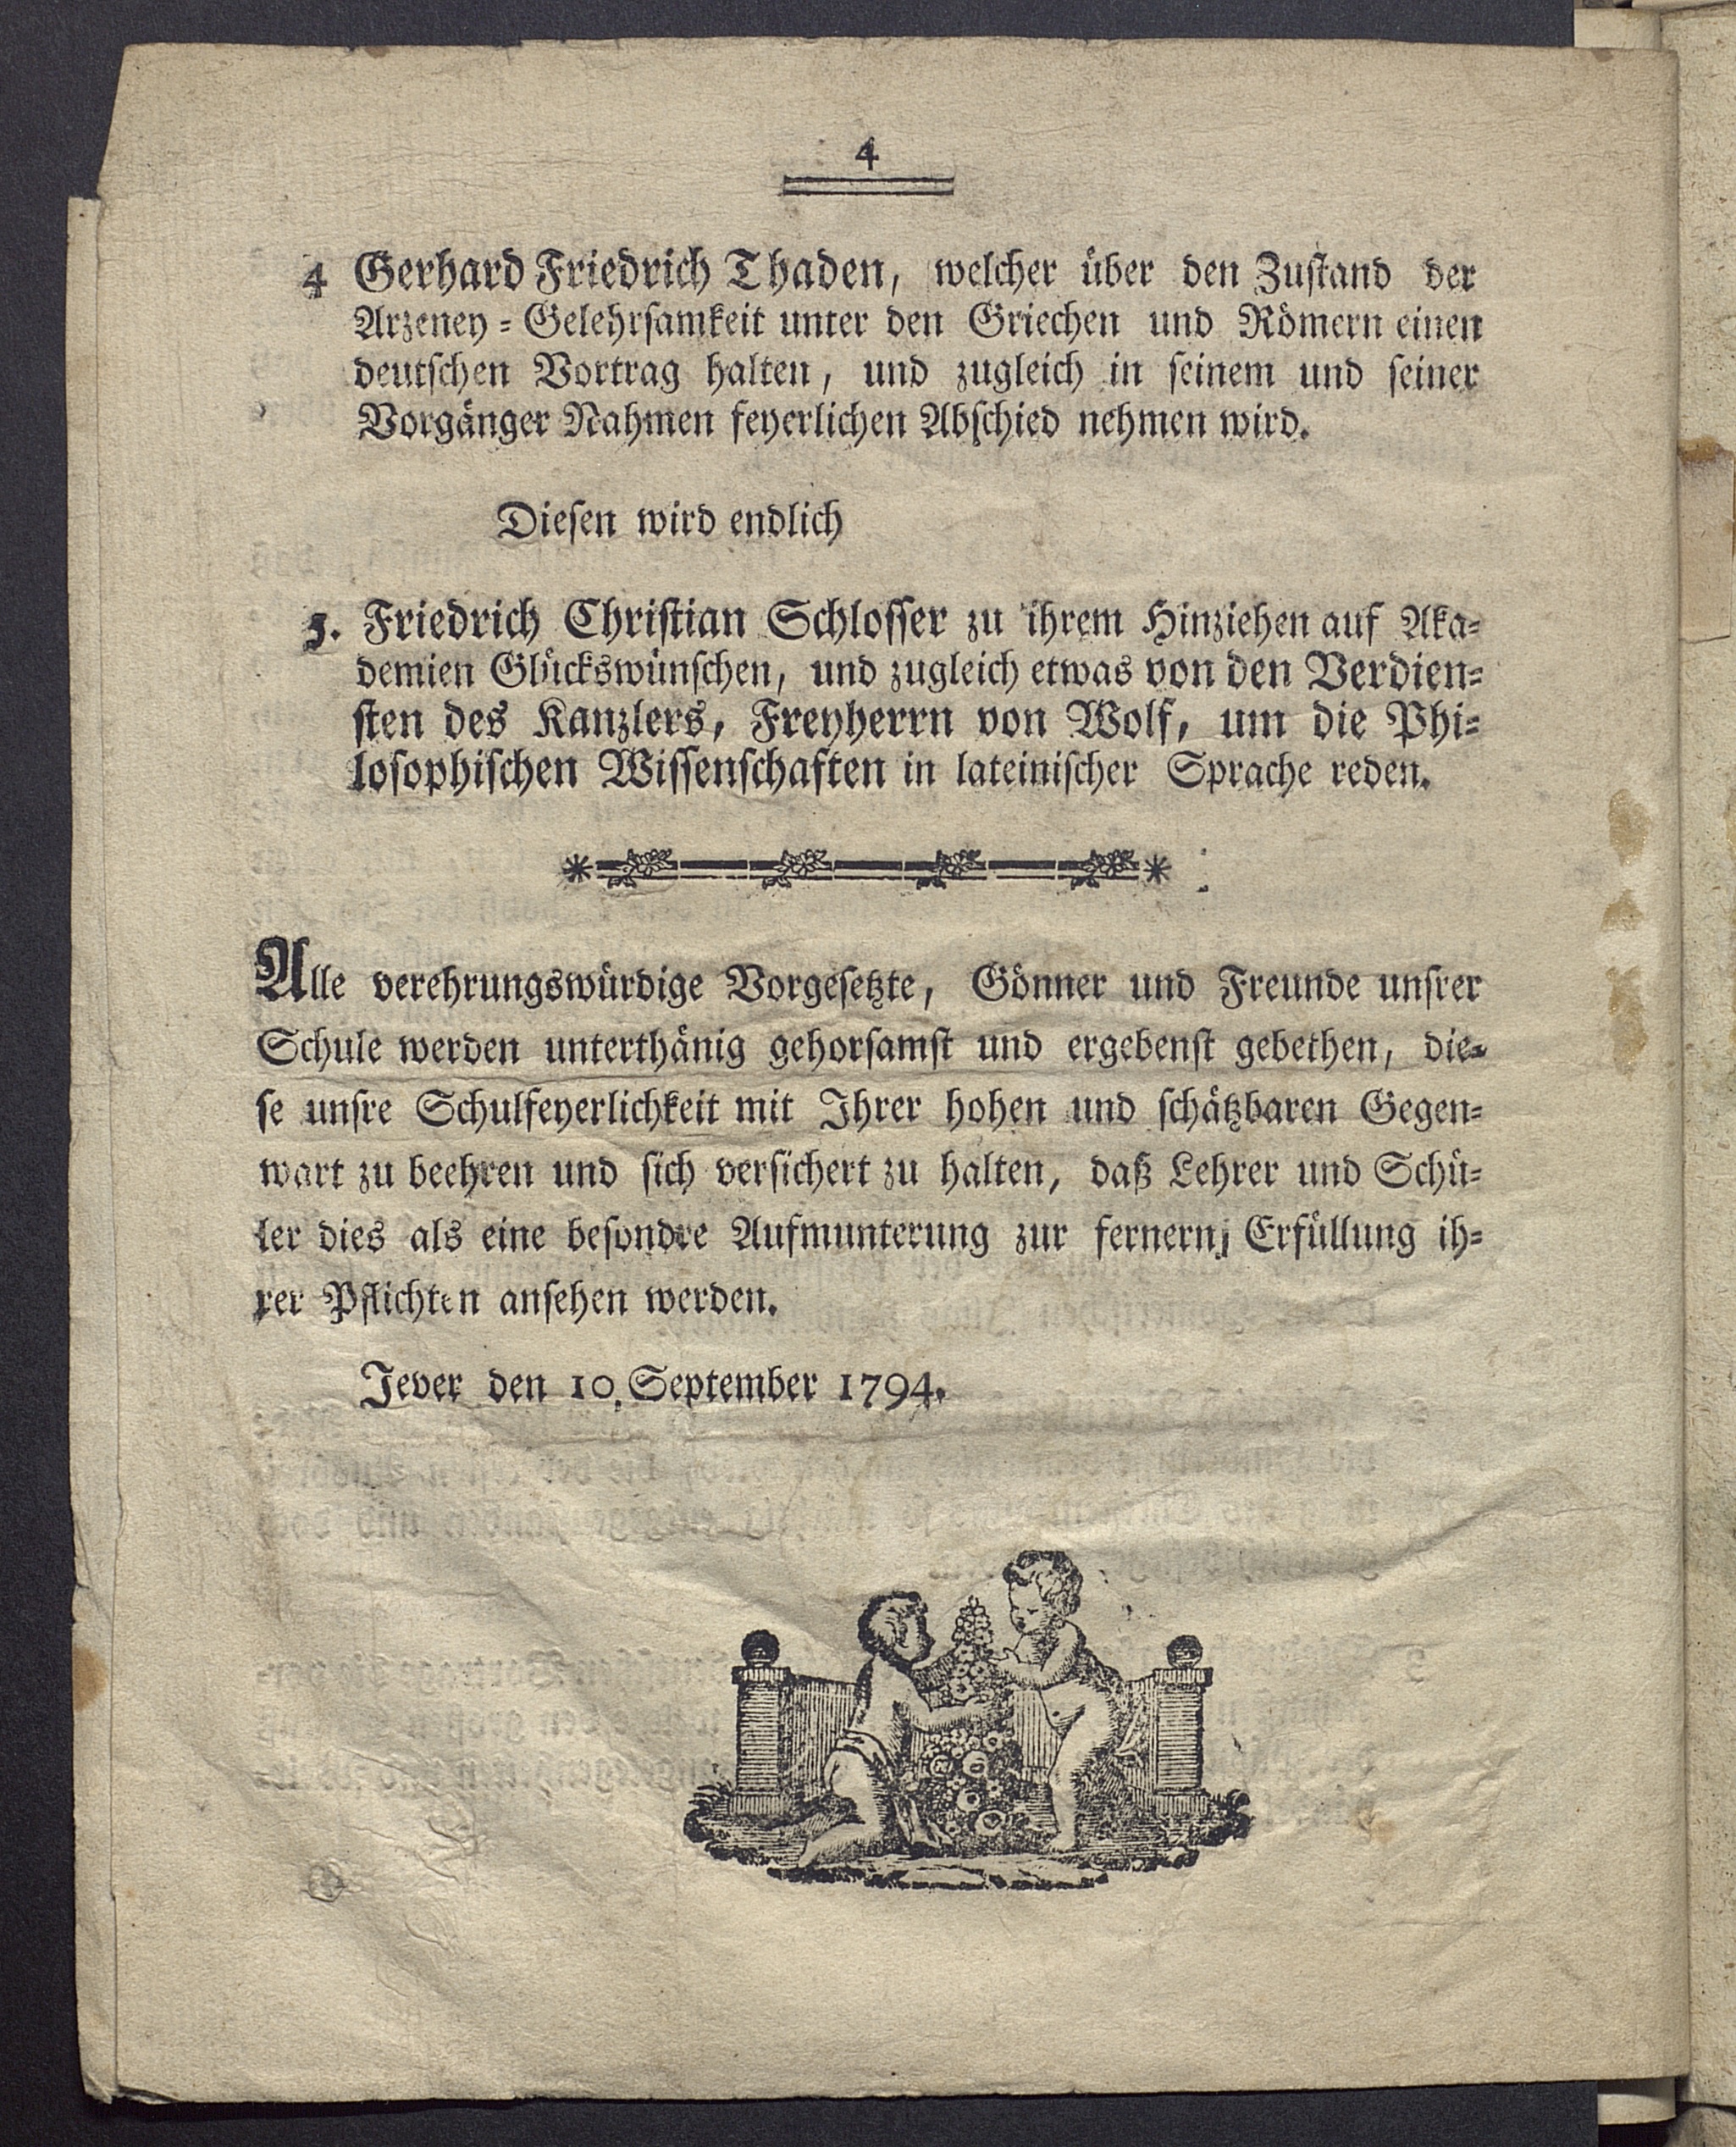 4
4 Gerhard Friedrich Thaden, welcher über den Zustand der
Arzeney=Gelehrsamkeit unter den Griechen und Römern einen
deutschen Vortrag halten, und zugleich in seinem und seiner
Vorgänger Nahmen feyerlichen Abschied nehmen wird.
Diesen wird endlich
5. Friedrich Christian Schlosser zu ihrem Hinziehen auf Aka=
demien Glückswünschen, und zugleich etwas von den Verdien=
sten des Kanzlers, Freyherrn von Wolf, um die Phi=
losophischen Wissenschaften in lateinischer Sprache reden.
Alle verehrungswürdige Vorgesetzte, Gönner und Freunde unsrer
Schule werden unterthänig gehorsamst und ergebenst gebethen, die=
se unsre Schulfeyerlichkeit mit Ihrer hohen und schätzbaren Gegen=
wart zu beehren und sich versichert zu halten, daß Lehrer und Schü=
ler dies als eine besondre Aufmunterung zur fernern Erfüllung ih=
rer Pflichten ansehen werden.
Jever den 10. September 1794.